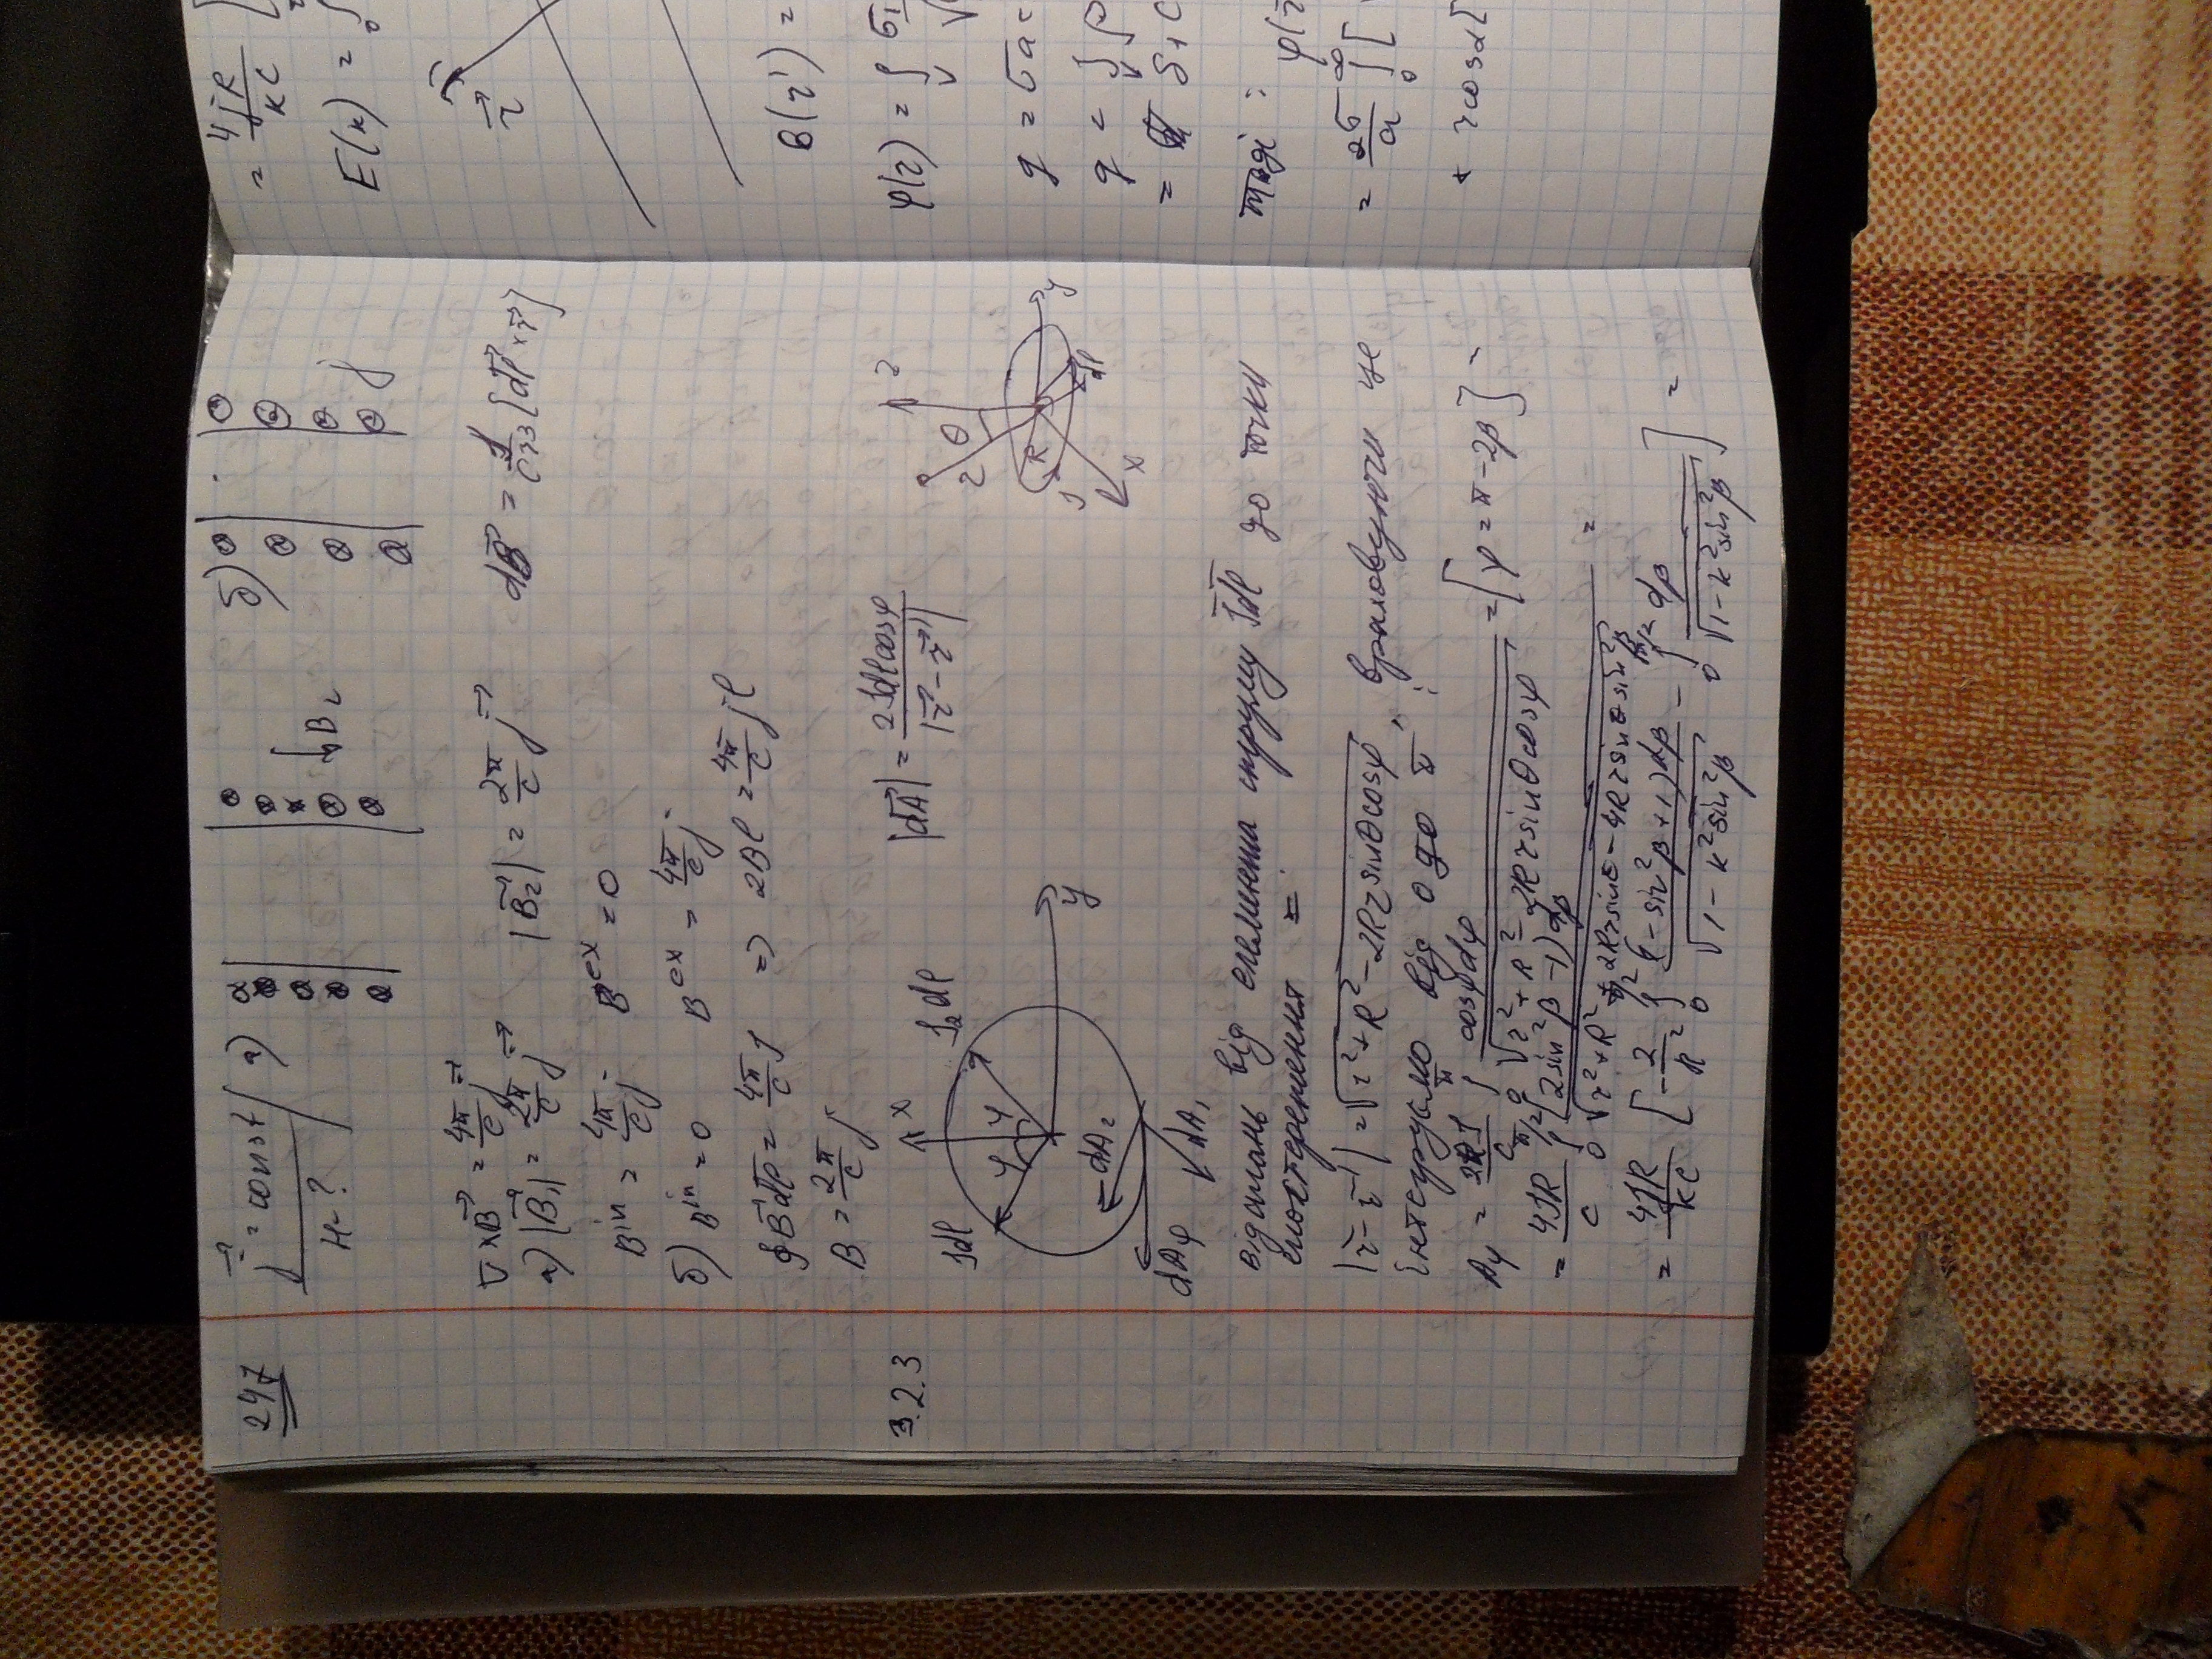 247
j⃗ = const
H - ?
а)
B₂
б)
j
∇×B⃗ = 4π/c j⃗
dB⃗ = J/cr³ [dl⃗ × r⃗]
а) |B⃗₁| = 2π/c j⃗ |B⃗₂| = 2π/c j⃗
Bⁱⁿ = 4π/c j Bᵉˣ = 0
б) Bⁱⁿ = 0 Bᵉˣ = 4π/c j
∮B⃗dl⃗ = 4π/c J => 2Bl = 4π/c jl
B = 2π/c j
3.2.3
Jdl
x
J₂dl
y
φ φ
dA₂
dAφ dA₁
|dA⃗| = 2Jdlcosφ / |r⃗ - r⃗'|
z
r θ
R
J
x
y
dl
відстань від елемента струму Jdl⃗ до точки
спостереження =
|r⃗ - r⃗'| = √(r² + R² - 2Rr sinθcosφ), враховуючи це
інтегруємо від 0 до π:
Aφ = 2RJ/c ∫₀^π cosφdφ / √(r² + R² - 2Rr sinθcosφ) = [φ = π - 2β] -
= 4JR/c ∫₀^(π/2) (2sin²β - 1)dβ / √(r² + R² + 2Rr sinθ - 4Rr sinθ sin²β) =
= 4JR/kc [-2/k² ∫₀^(π/2) (k² - sin²β + 1)dβ / √(1 - k² sin²β) - ∫₀^(π/2) dβ / √(1 - k² sin²β)] =
= 4JR/kc [
E(k) = ∫₀
r⃗
B(r⃗) =
φ(r) = ∫ᵥ
q = σa =
q = ∫ᵥ ρ
=
тоді: φ(r
= 2σ/a ∫₀^∞ [
+ rcosα[